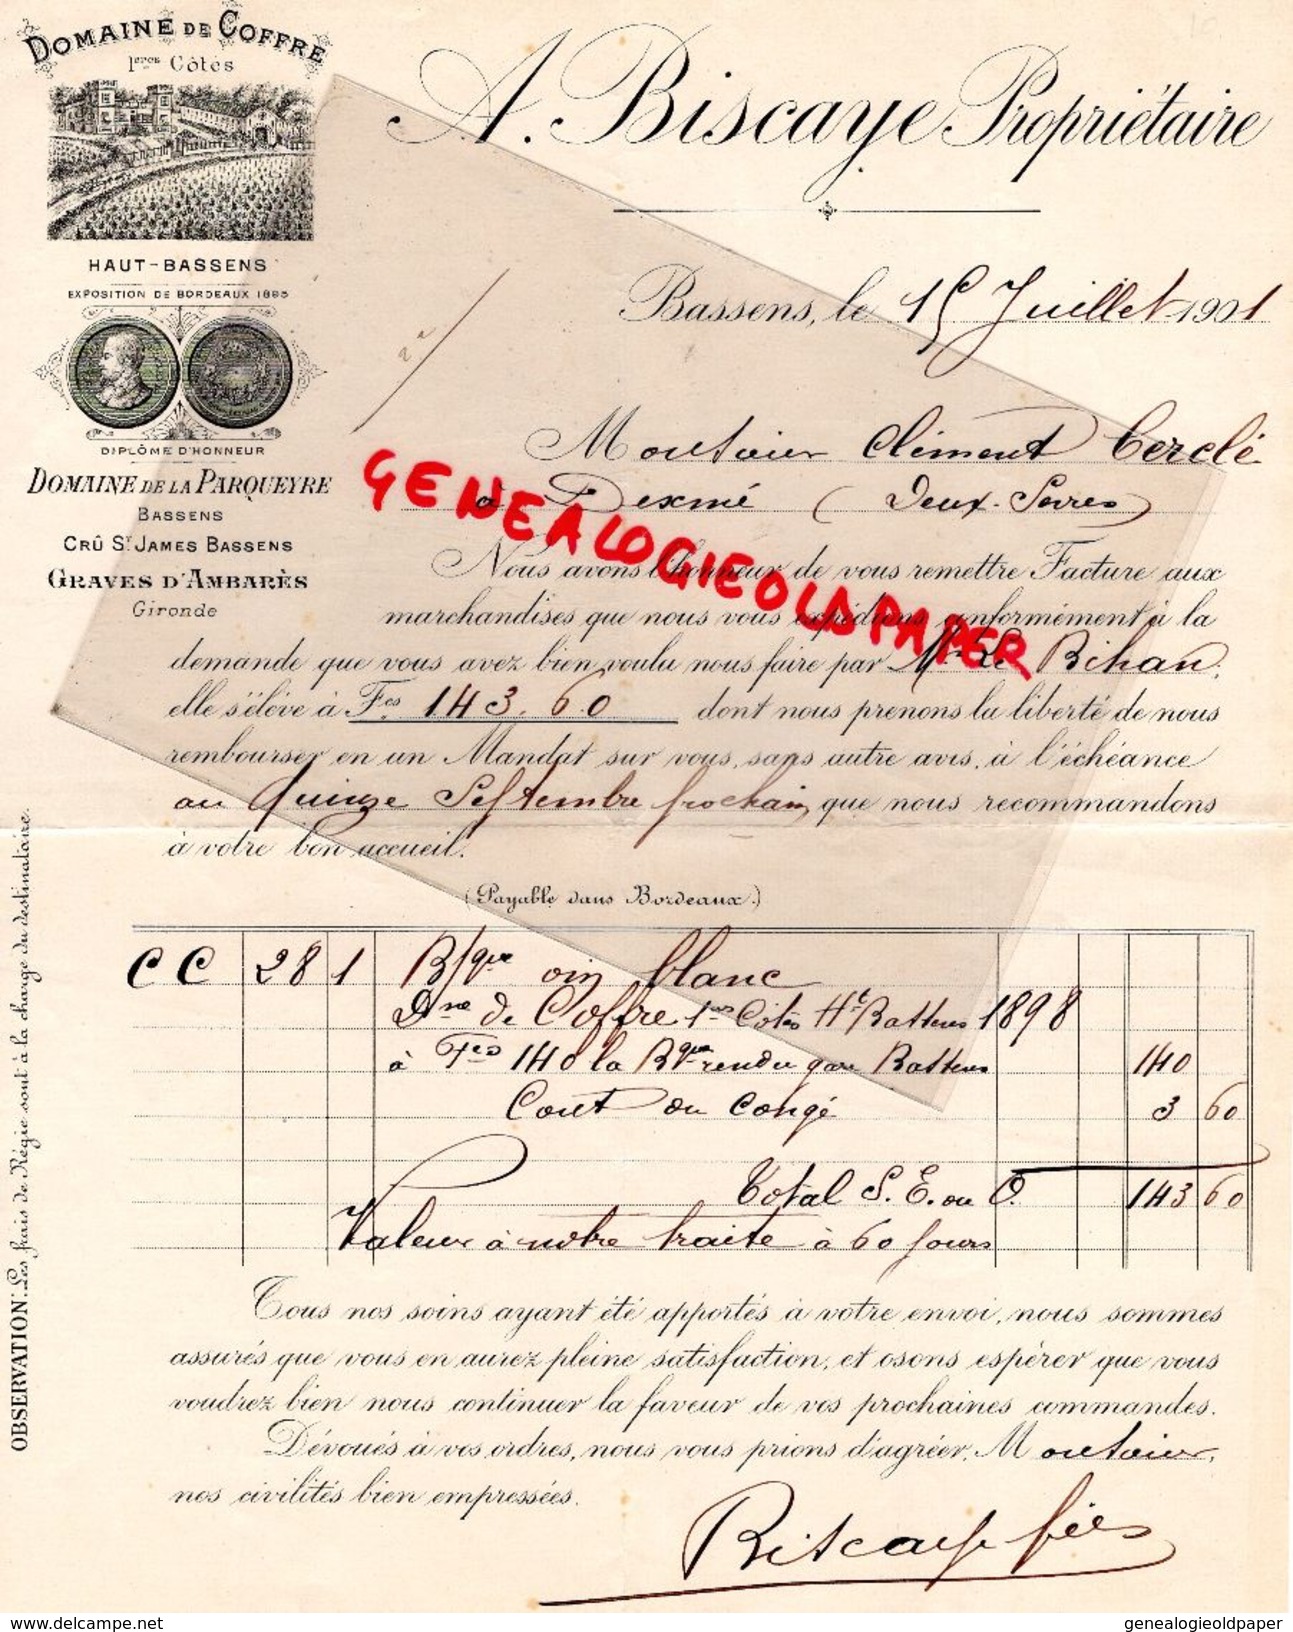 DOMAINE DE COFFRE
1ères Côtés
HAUT-BASSENS
EXPOSITION DE BORDEAUX 1885
DIPLÔME D'HONNEUR
DOMAINE DE LA PARQUEYRE
BASSENS
CRÛ ST JAMES BASSENS
GRAVES D'AMBARÈS
Gironde
A. Biscaye Propriétaire
Bassens, le 15 Juillet 1901
Monsieur Clément Cerclé
à Dexmé (Deux-Sevres)
GENEALOGIEOLDPAPER
Nous avons l'honneur de vous remettre Facture aux
marchandises que nous vous expédions conformément à la
demande que vous avez bien voulu nous faire par Mr Le Bihan,
elle s'élève à Fcs 143.60 dont nous prenons la liberté de nous
rembourser en un Mandat sur vous, sans autre avis, à l'échéance
au Quinze Septembre prochain que nous recommandons
à votre bon accueil.
(Payable dans Bordeaux.)
CC 28 1 B/que vin blanc
Dne de Coffre 1res Côtes Ht Bassens 1898
à Fcs 140 la Bque rendu gare Bassens 140
Cout du Congé 3 60
Total S. E. ou O. 143 60
Valeur à notre traite à 60 jours
Tous nos soins ayant été apportés à votre envoi, nous sommes
assurés que vous en aurez pleine satisfaction, et osons espérer que vous
voudrez bien nous continuer la faveur de vos prochaines commandes.
Dévoués à vos ordres, nous vous prions d'agréer, Monsieur,
nos civilités bien empressées.
Biscaye fils
OBSERVATION: Les frais de Régie sont à la charge du destinataire.
www.delcampe.net
genealogieoldpaper